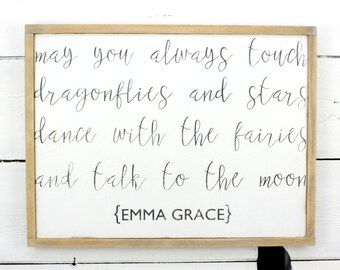 may you always touch
dragonflies and stars
dance with the fairies
and talk to the moon
{EMMA GRACE}